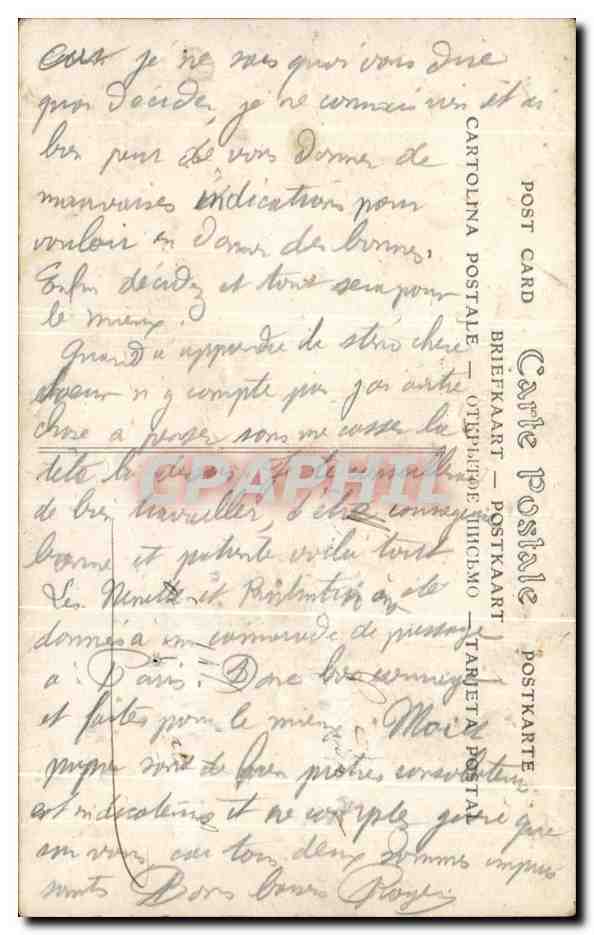 car je ne sais quoi vous dire
quoi décider, je ne connais rien et ai
bien peur de vous donner de
mauvaises indications pour
vouloir en donner des bonnes.
Enfin décidez et tout sera pour
le mieux.
Quand à apprendre la sténo chère
soeur n'y compte pas j'ai autre
chose à penser sans me casser la
tête là dessus. Je te conseille
de bien travailler, d'être courageuse
bonne et patiente voilà tout
Les Nénette et Rintintin ont été
donnés à un camarade de passage
à Paris. Donc bon courage
et faites pour le mieux. Moi et
papa sont de bien piètres consolateurs
et indicateurs et ne comptez guère que
sur vous, car tous deux sommes impuis
sants Bons baisers Roger
POST CARD Carte Postale POSTKARTE
BRIEFKAART — POSTKAART
CARTOLINA POSTALE — ОТКРЫТОЕ ПИСЬМО — TARJETA POSTAL
CPAPHIL